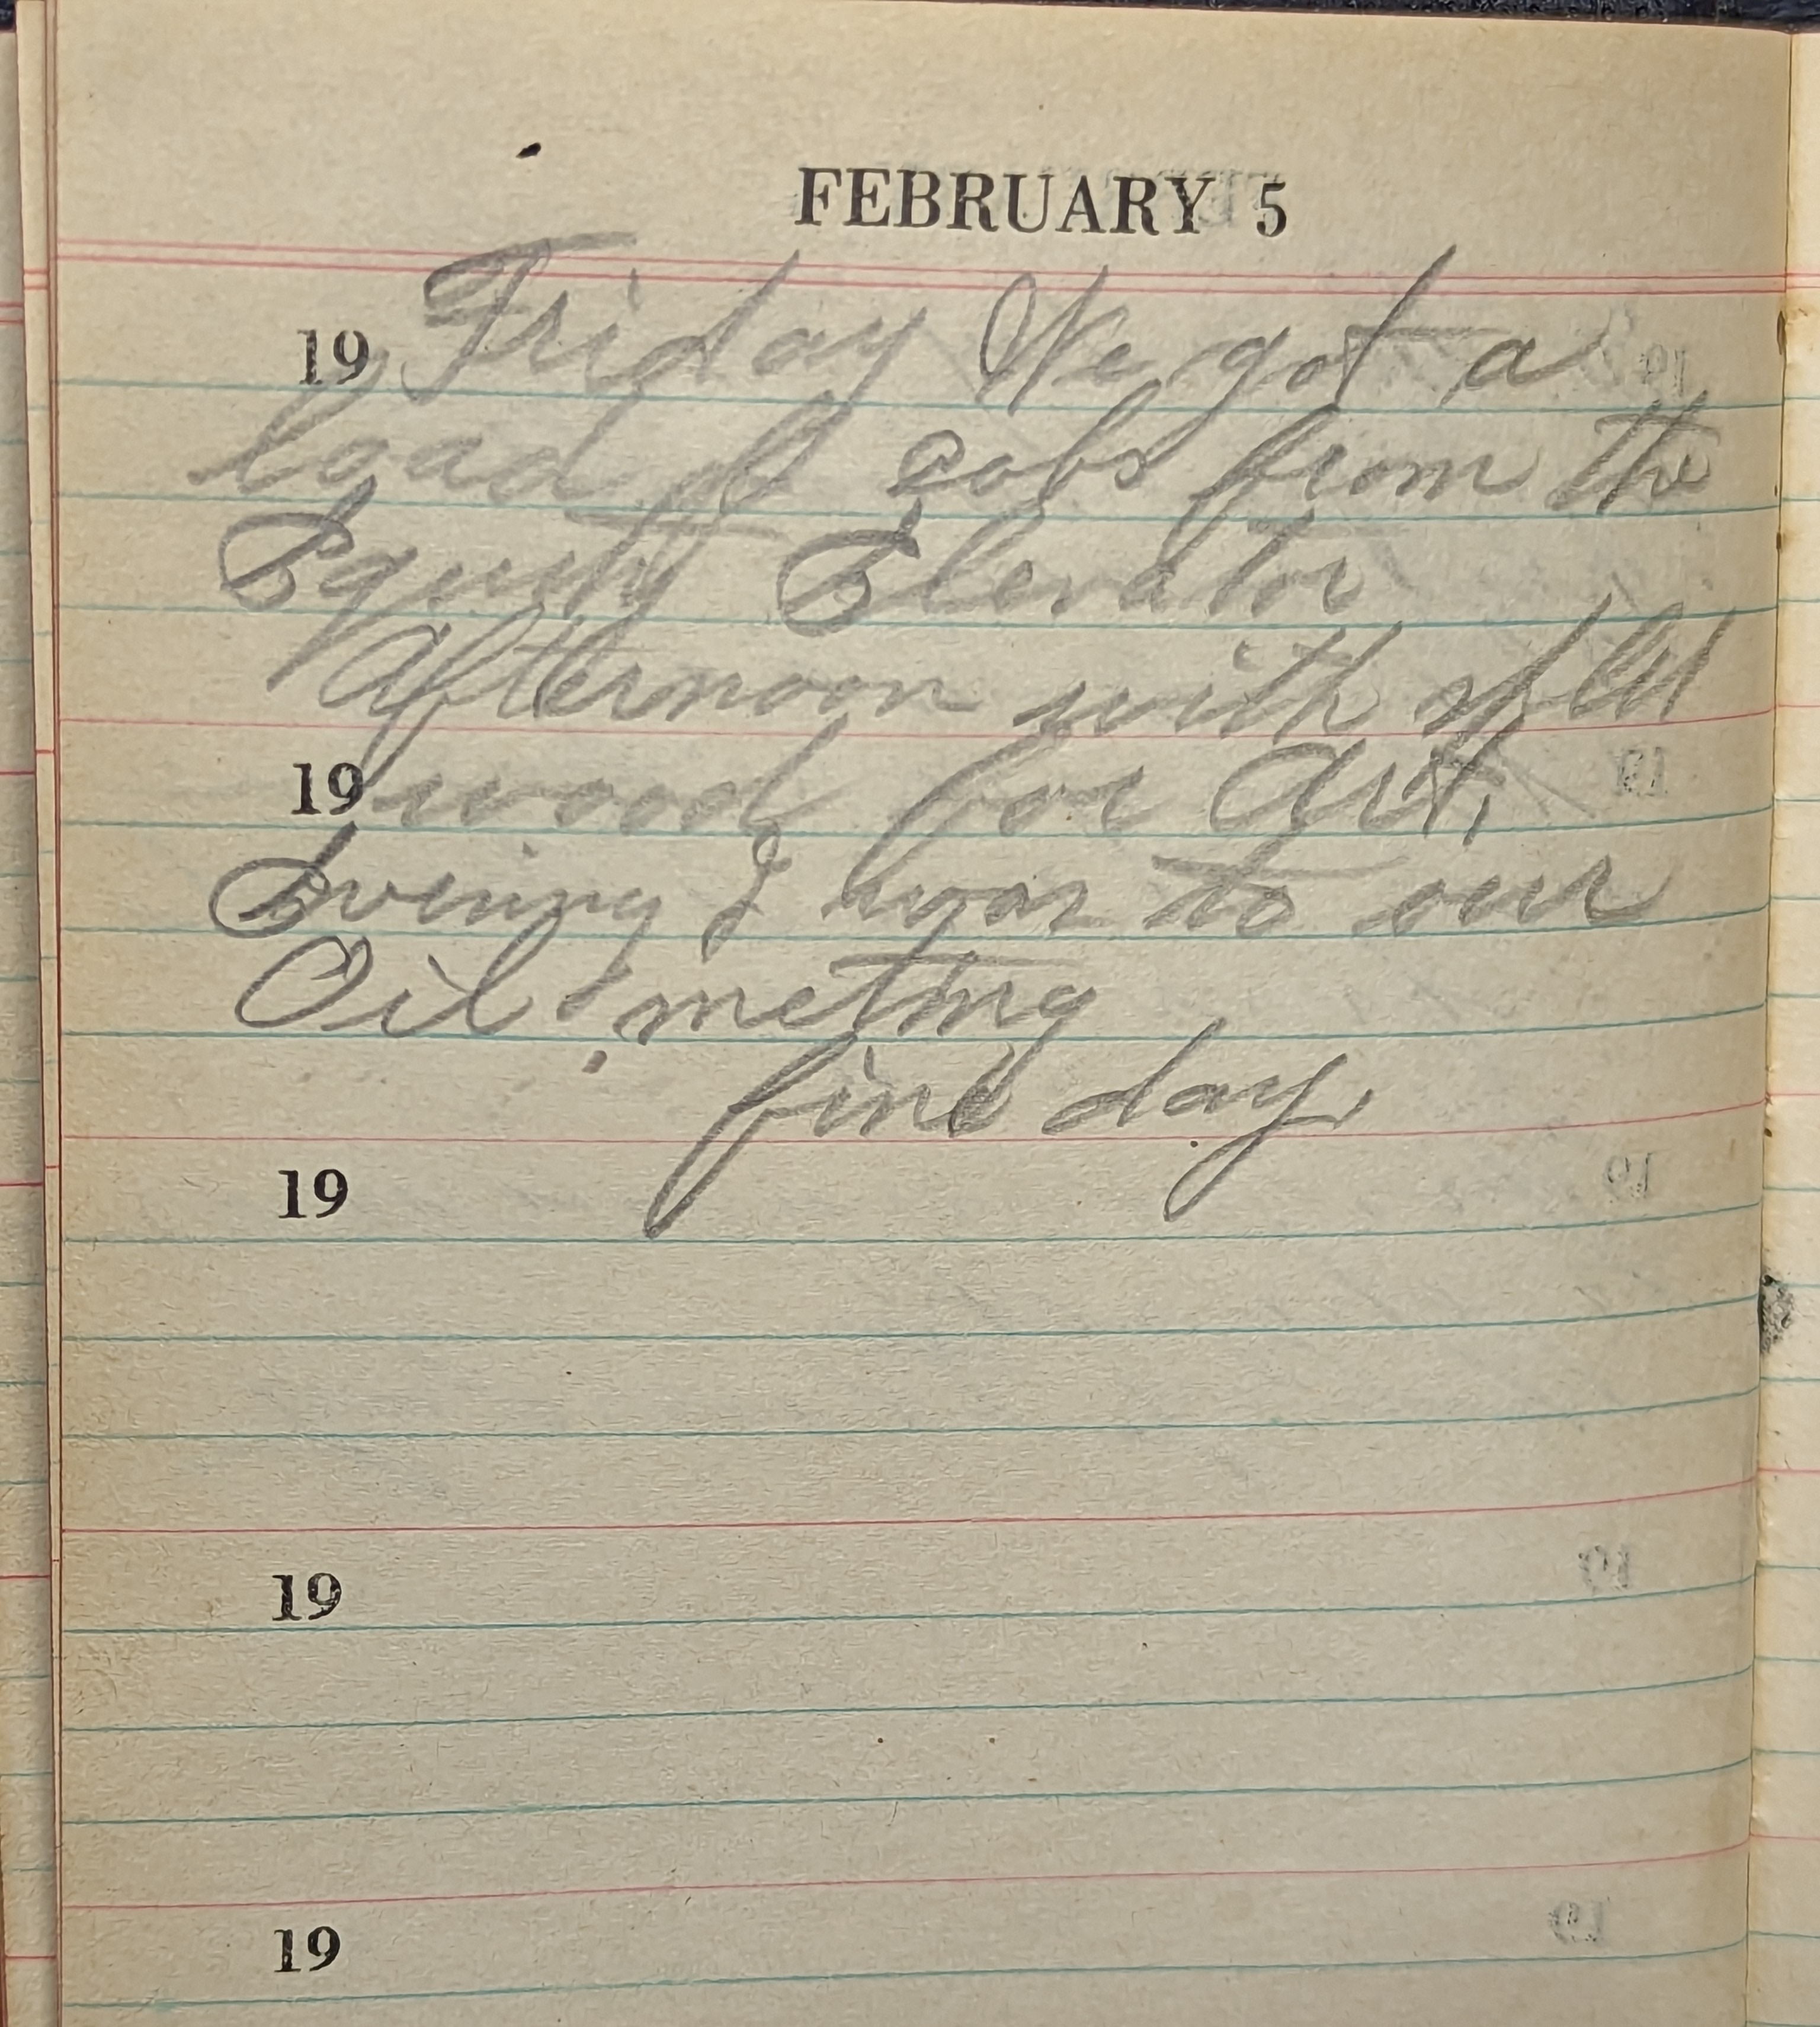 FEBRUARY 5
19 Friday We got a
load of cobs from the
Equity Elevator
afternoon with
19 wood for Art,
Evening I was to our
Oil meting
fine day,
19
19
19